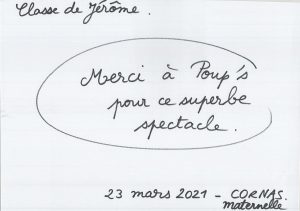 Classe de Jérôme.
Merci à Poup's
pour ce superbe
spectacle.
23 mars 2021 - CORNAS.
maternelle